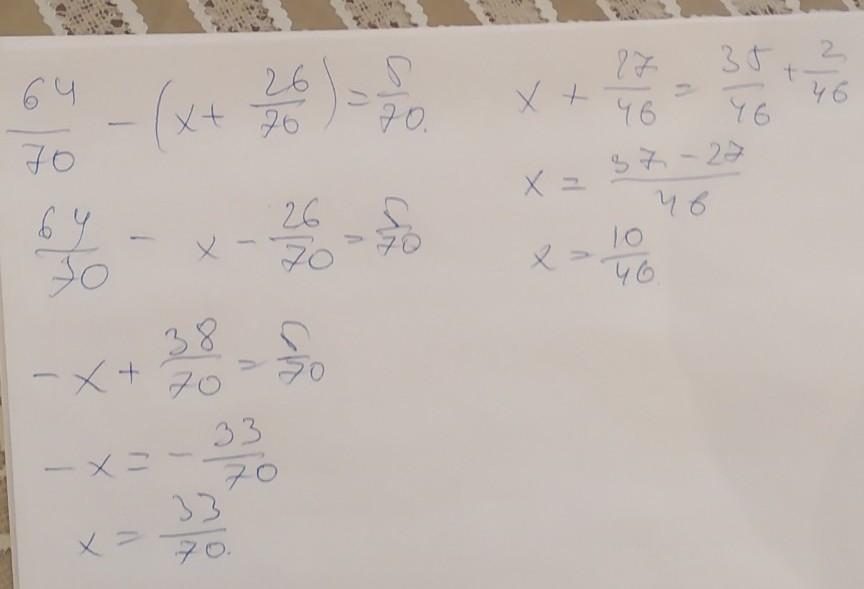 64/70 - (x + 26/70) = 5/70.
64/70 - x - 26/70 = 5/70
-x + 38/70 = 5/70
-x = -33/70
x = 33/70.
x + 27/46 = 35/46 + 2/46
x = 37-27/46
x = 10/46.